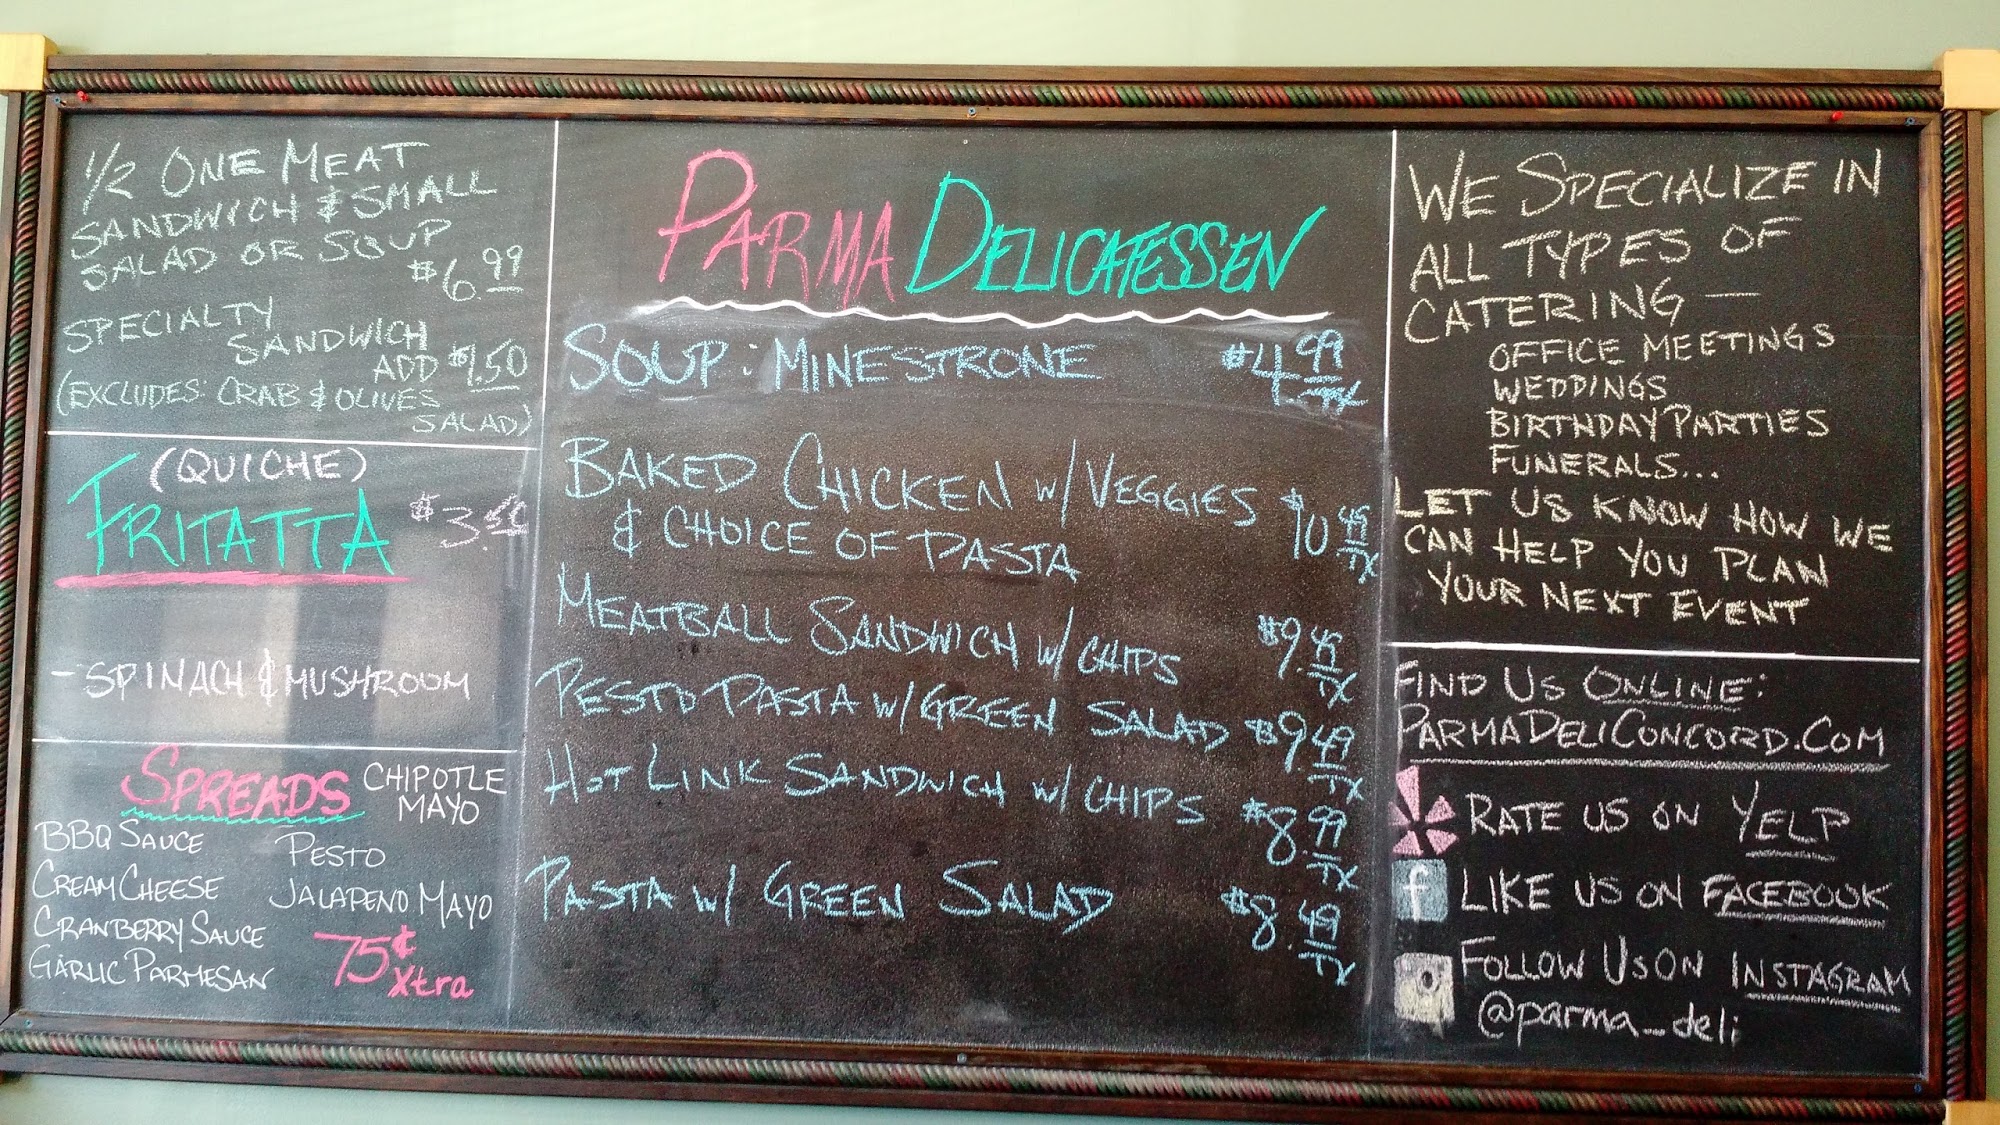 1/2 ONE MEAT
SANDWICH & SMALL
SALAD OR SOUP
$6.99
SPECIALTY
SANDWICH
ADD $1.50
(EXCLUDES: CRAB & OLIVES
SALAD)
(QUICHE)
FRITATTA $3.50
- SPINACH & MUSHROOM
SPREADS CHIPOTLE
MAYO
BBQ SAUCE PESTO
CREAM CHEESE JALAPENO MAYO
CRANBERRY SAUCE
GARLIC PARMESAN
75¢
Xtra
PARMA DELICATESSEN
SOUP: MINESTRONE $4.99
TX
BAKED CHICKEN W/ VEGGIES $10.45
& CHOICE OF PASTA TX
MEATBALL SANDWICH W/ CHIPS $9.45
TX
PESTO PASTA W/ GREEN SALAD $9.49
TX
HOT LINK SANDWICH W/ CHIPS $8.99
TX
PASTA W/ GREEN SALAD $8.49
TX
WE SPECIALIZE IN
ALL TYPES OF
CATERING —
OFFICE MEETINGS
WEDDINGS
BIRTHDAY PARTIES
FUNERALS...
LET US KNOW HOW WE
CAN HELP YOU PLAN
YOUR NEXT EVENT
FIND US ONLINE:
PARMADELICONCORD.COM
RATE US ON YELP
f LIKE US ON FACEBOOK
FOLLOW US ON INSTAGRAM
@parma_deli